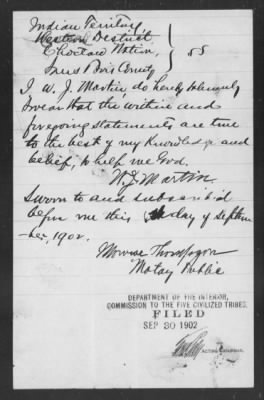 Indian Territory
Western District
Choctaw Nation, } SS
County
I W. J. Martin do hereby solemnly
swear that the written and
foregoing statements are true
to the best of my knowledge and
belief, so help me God.
W. J. Martin
Sworn to and subscribed
before me this day of Septem
ber, 1902.
Monroe Thompson
Notary Public
DEPARTMENT OF THE INTERIOR,
COMMISSION TO THE FIVE CIVILIZED TRIBES.
FILED
SEP 30 1902
ACTING CHAIRMAN.